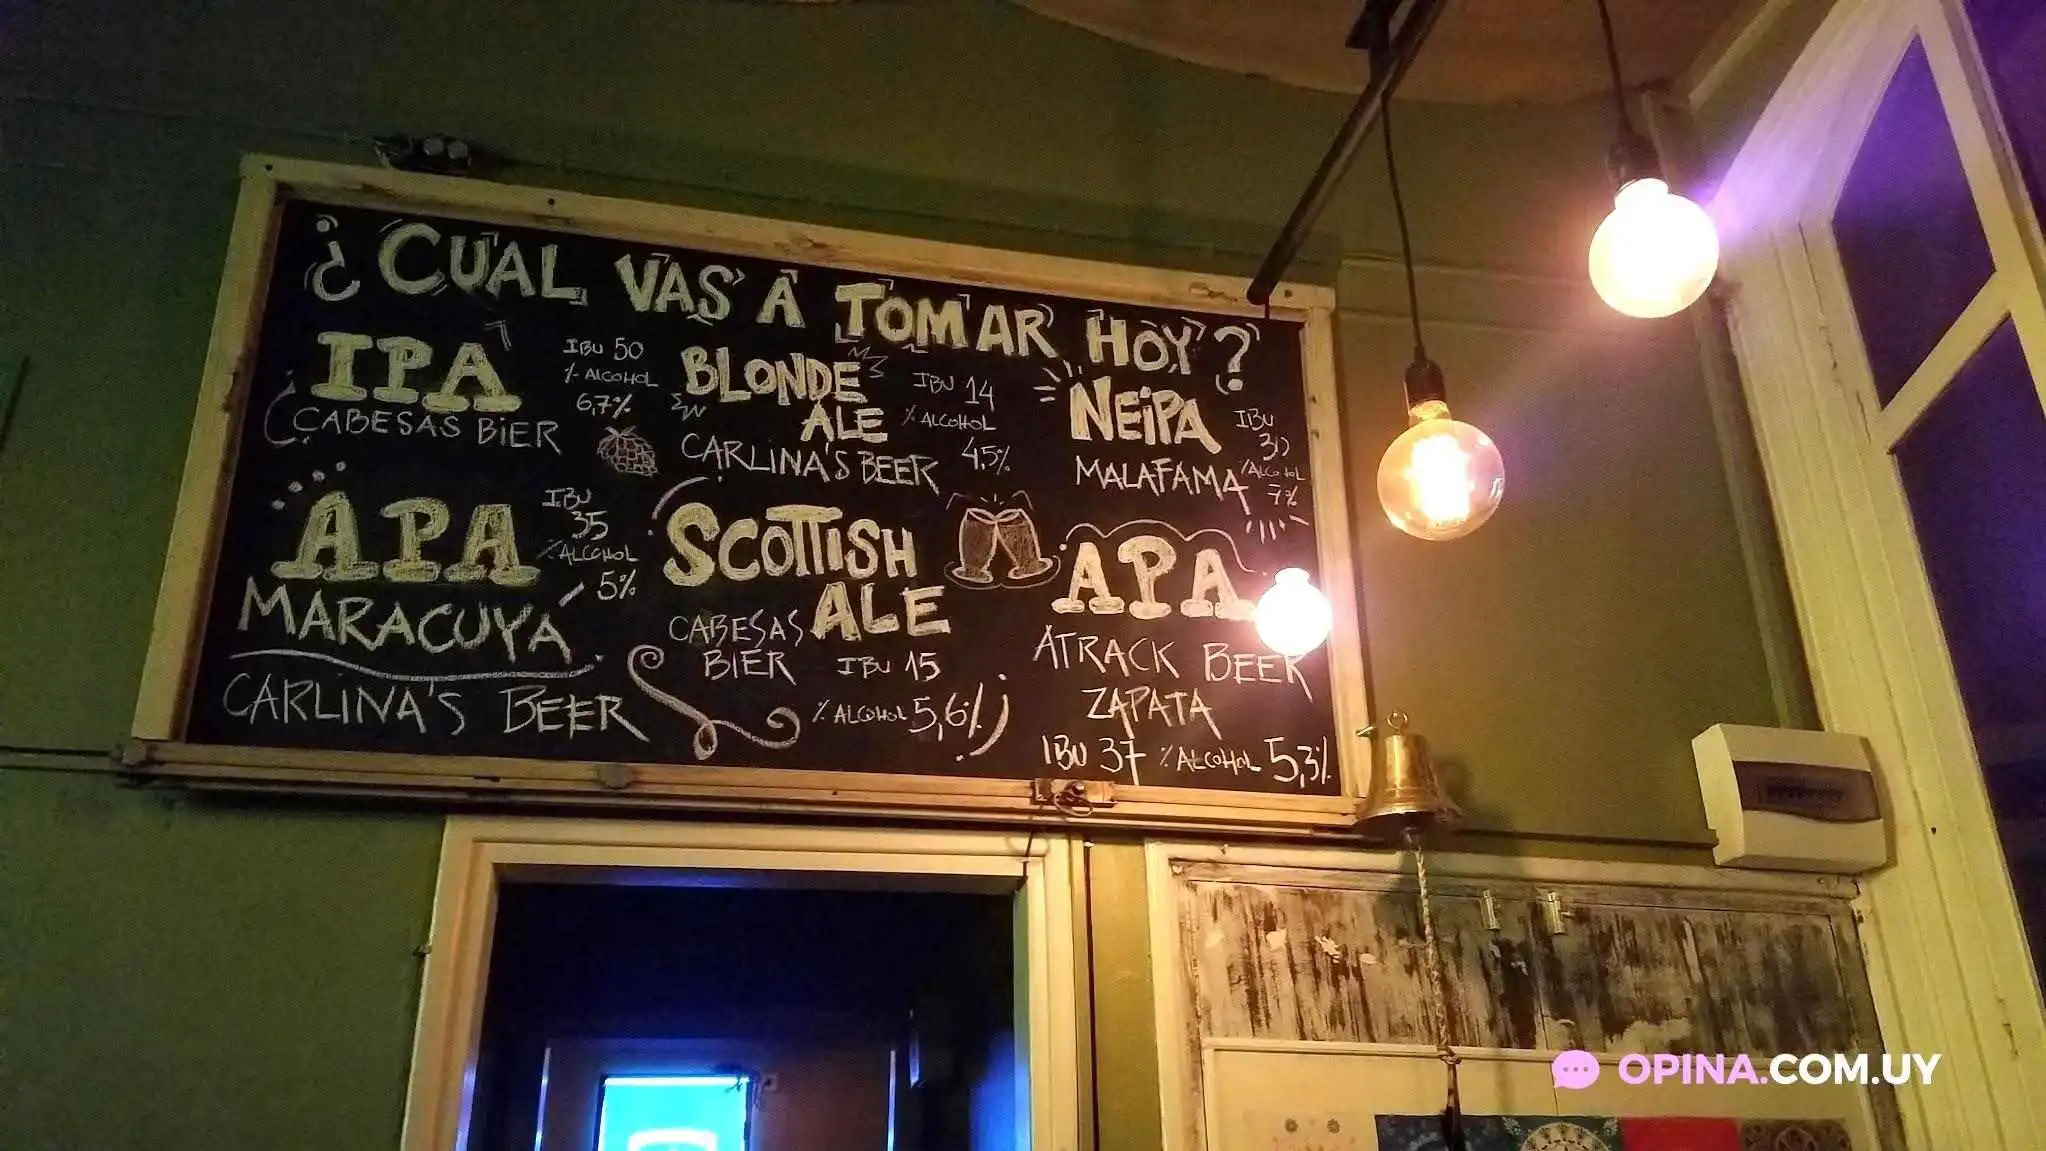 ¿CUAL VAS A TOMAR HOY?
IPA
IBU 50
% ALCOHOL
6,7%
CABESAS BIER
BLONDE
ALE
IBU 14
% ALCOHOL
4,5%
CARLINA'S BEER
NEIPA
IBU
% ALCOHOL
7%
MALAFAMA
APA
IBU
35
% ALCOHOL
5%
MARACUYA
CARLINA'S BEER
SCOTTISH
ALE
CABESAS
BIER
IBU 15
% ALCOHOL 5,6%
APA
ATRACK BEER
ZAPATA
IBU 37 % ALCOHOL 5,3%
OPINA.COM.UY